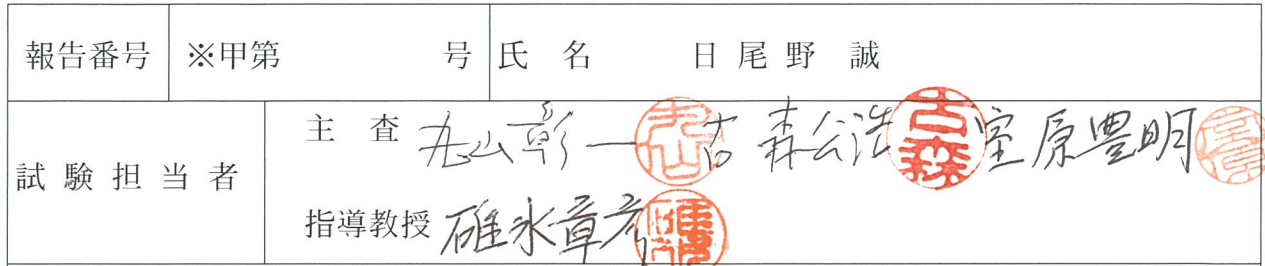 報告番号 ※甲第 号 氏名 日尾野 誠
試験担当者 主査 丸山彰一 丸山 古森公浩 古森 室原豊明 室原
指導教授 碓氷章彦 碓氷